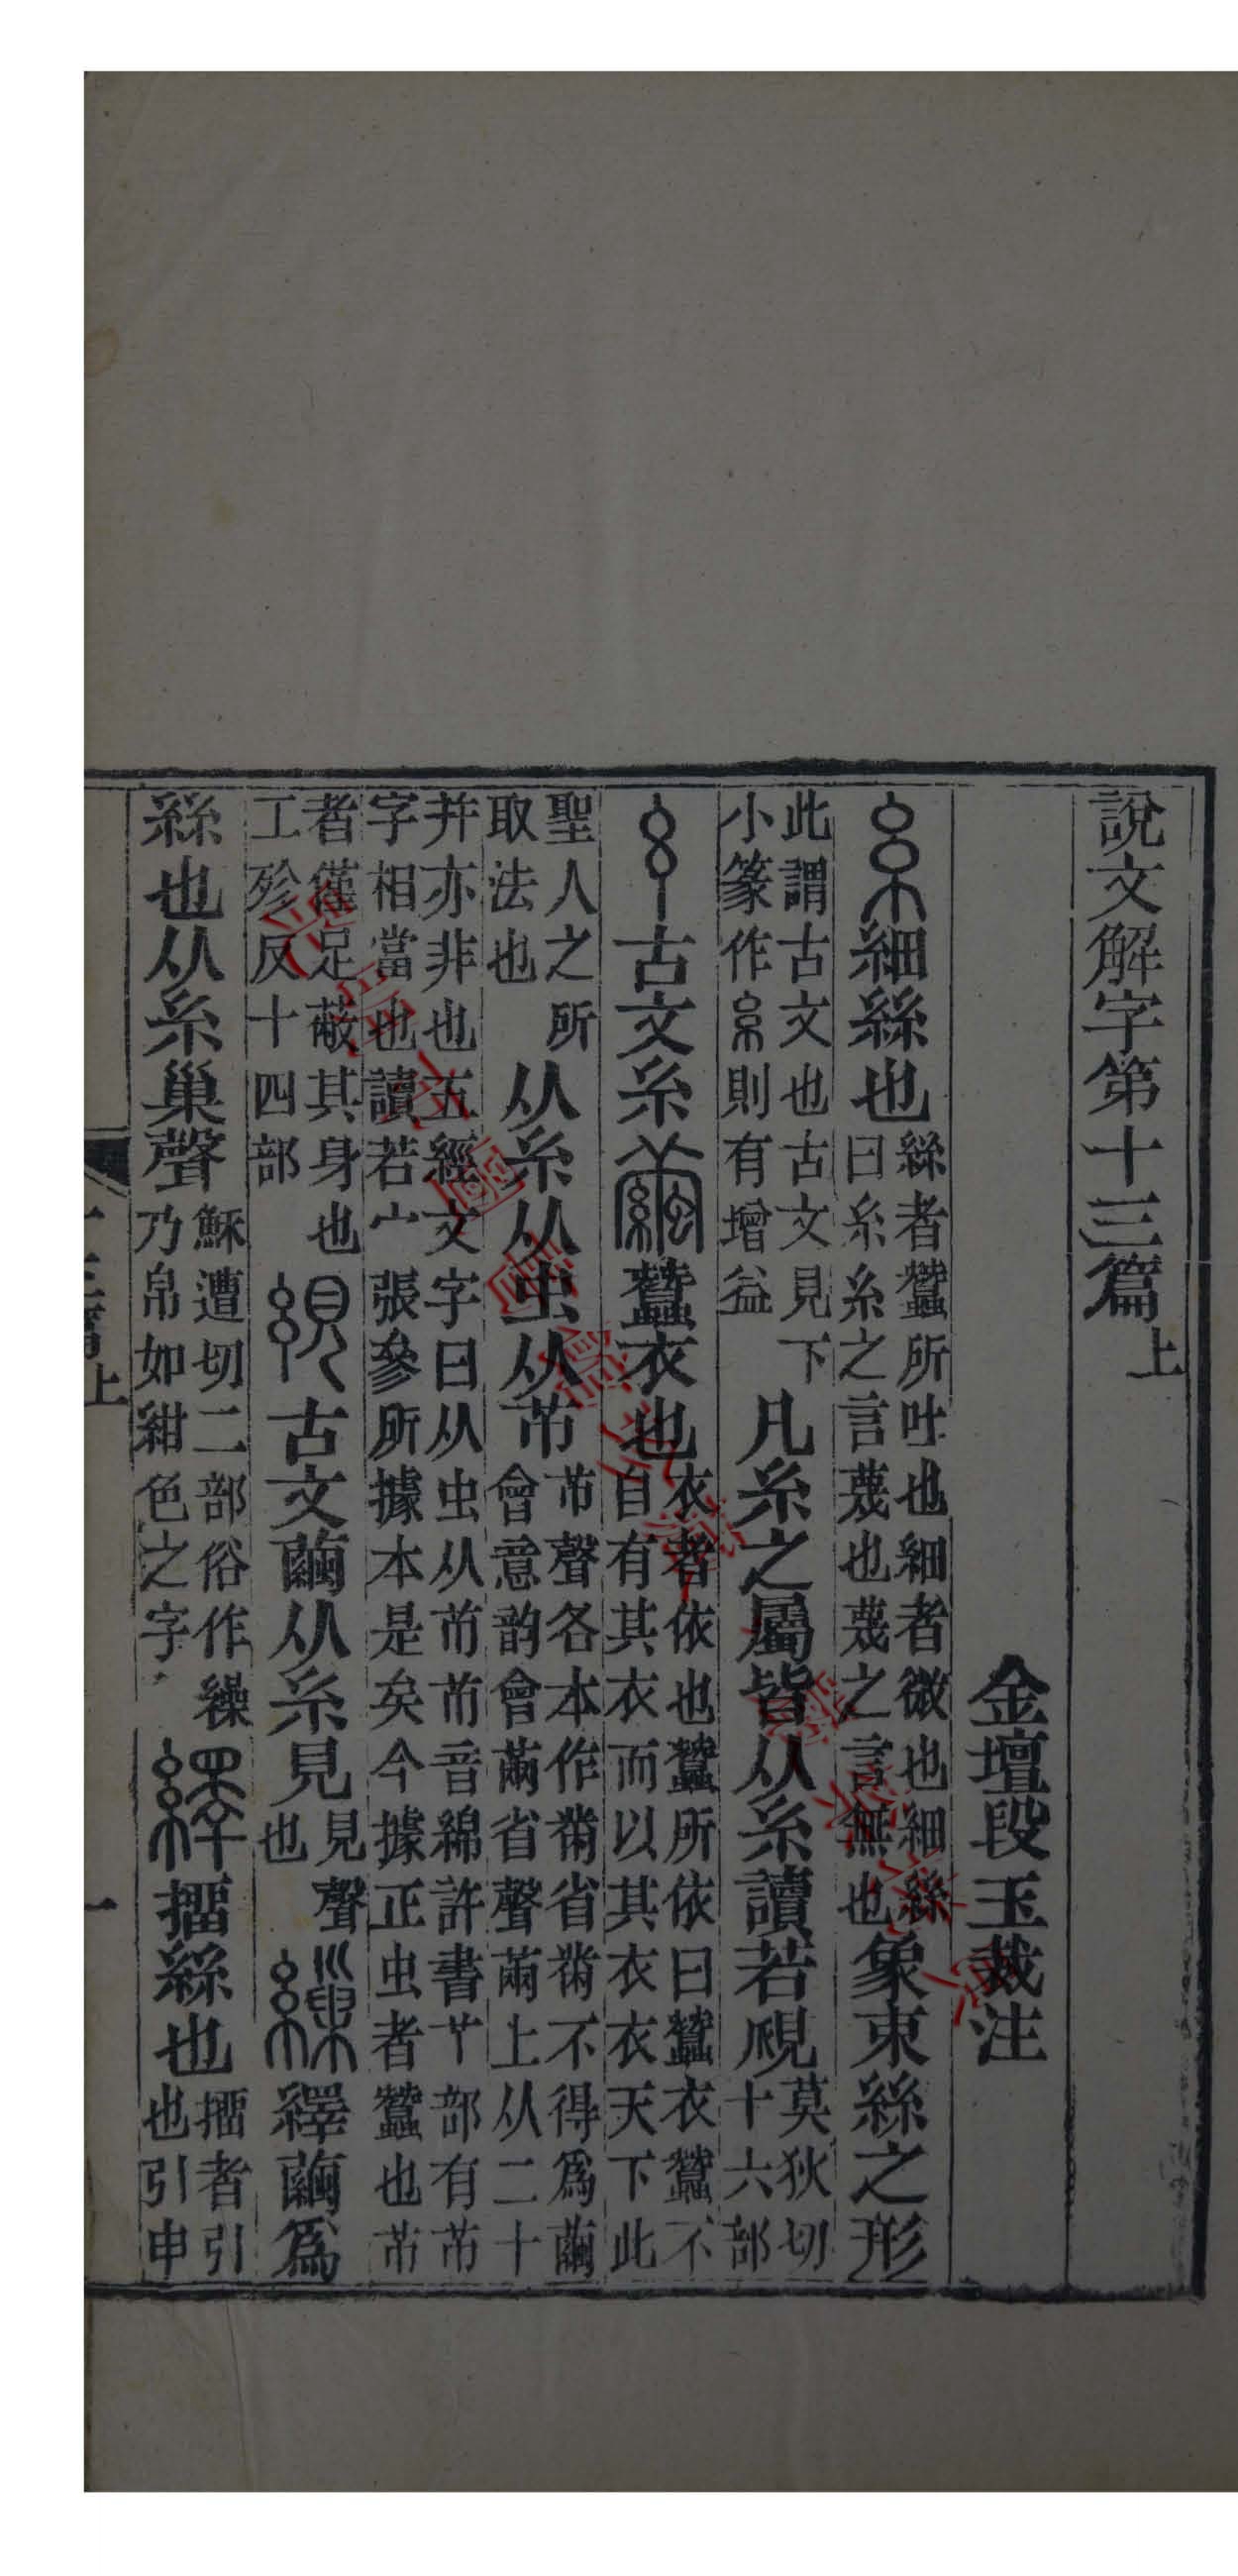 說文解字第十三篇上
金壇段玉裁注
糸細絲也絲者蠶所吐也細者微也細絲曰糸糸之言蔑也蔑之言無也象束絲之形
此謂古文也古文見下小篆作糸則有增益凡糸之屬皆从糸讀若覛莫狄切十六部
古文糸繭蠶衣也衣者依也蠶所依曰蠶衣蠶不自有其衣而以其衣衣天下此
聖人之所取法也从糸从虫从芇芇聲各本作黹省黹不得爲繭會意韵會繭省聲繭上从二十
幷亦非也五經文字曰从虫从芇芇音綿許書𦫳部有芇字相當也讀若宀張參所據本是矣今據正虫者蠶也芇
者僅足蔽其身也工殄反十四部絸古文繭从糸見見聲也繅繹繭爲
絲也从糸巢聲穌遭切二部俗作繰乃帛如紺色之字繹擂絲也擂者引也引申
十三篇上
一